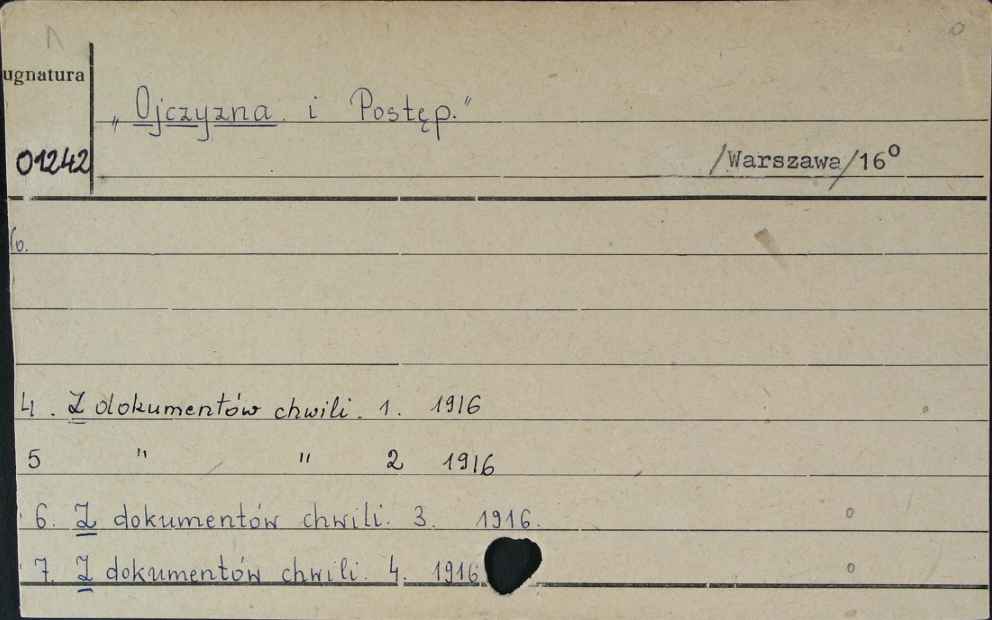 ugnatura
„Ojczyzna i Postęp.”
01242
/Warszawa/16⁰
4. Z dokumentów chwili. 1. 1916
5 " " 2 1916
6. Z dokumentów chwili. 3. 1916.
7. Z dokumentów chwili. 4. 1916